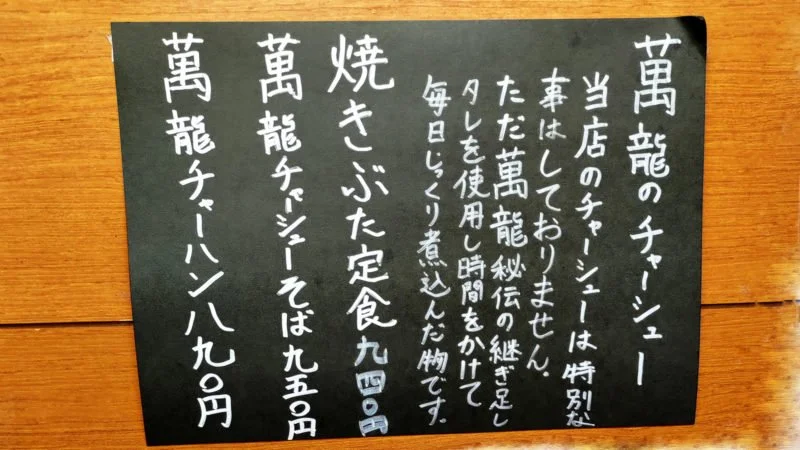 萬龍のチャーシュー
当店のチャーシューは特別な
事はしておりません。
ただ萬龍秘伝の継ぎ足し
タレを使用し時間をかけて
毎日じっくり煮込んだ物です。
焼きぶた定食九四〇円
萬龍チャーシューそば九五〇円
萬龍チャーハン八九〇円